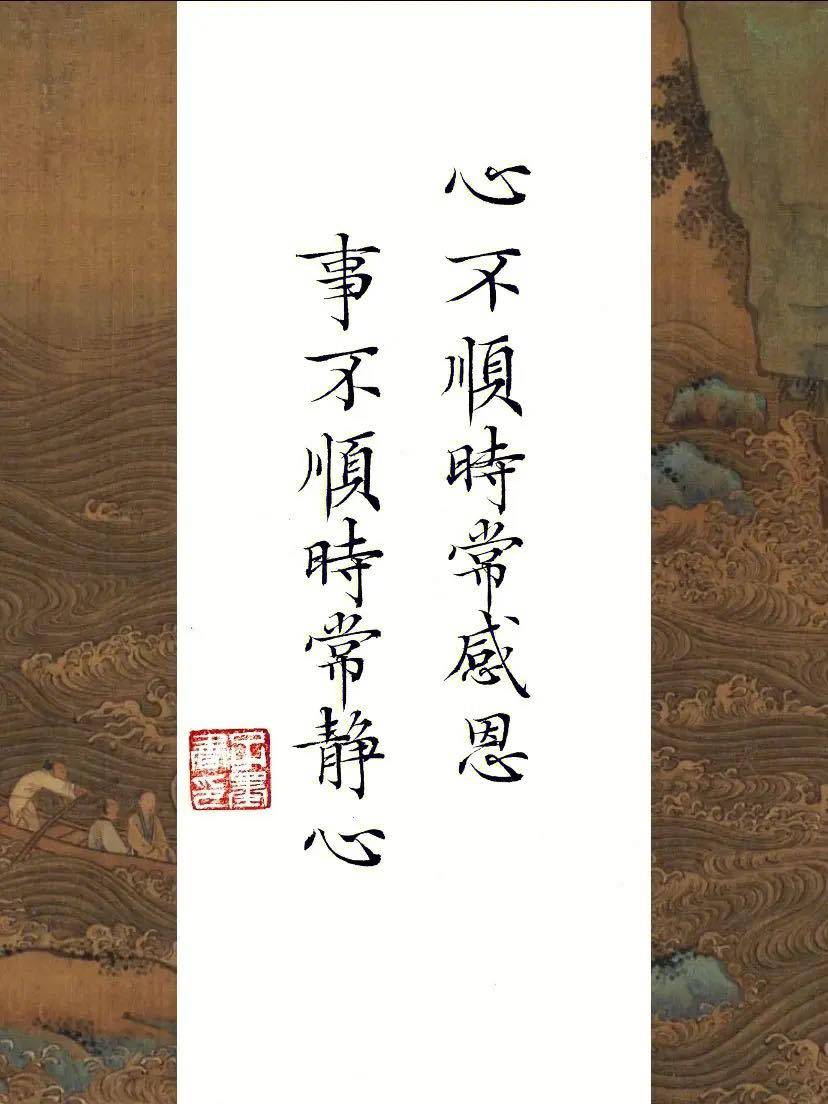 心不順時常感恩
事不順時常静心